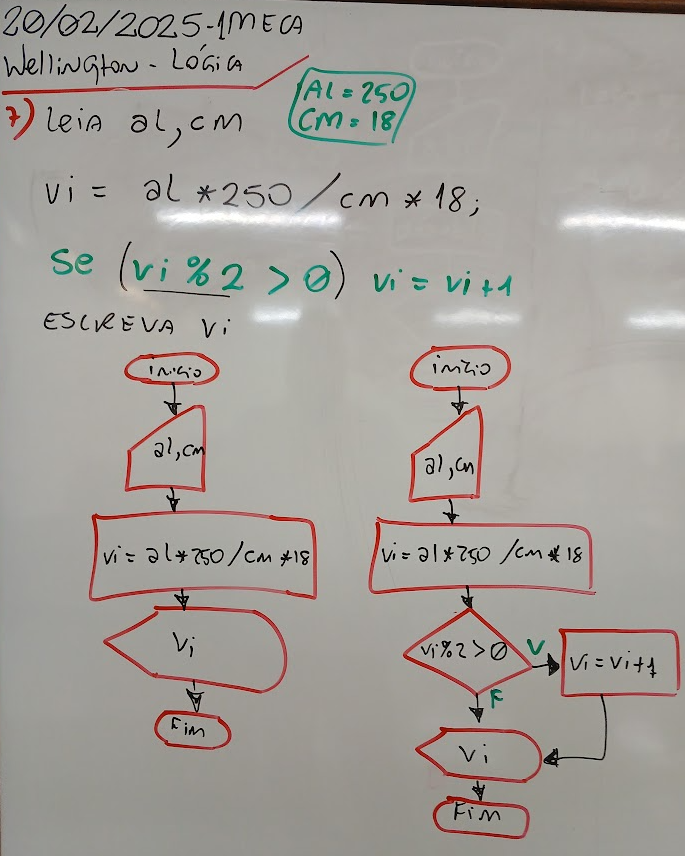 20/02/2025-1MECA
Wellington - LÓGICA
AL = 250
CM = 18
7) Leia al, cm
vi = al * 250 / cm * 18;
Se (vi % 2 > 0) vi = vi + 1
ESCREVA Vi
início
al, cm
vi = al * 250 / cm * 18
Vi
Fim
início
al, cm
vi = al * 250 / cm * 18
vi % 2 > 0
V
vi = vi + 1
F
Vi
Fim